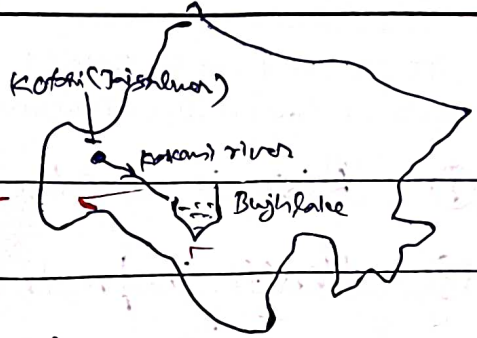 Kotari (Jaisalmer)
kakani river
Bujh lake